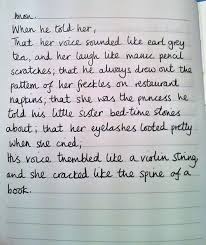 mon.
When he told her,
That her voice sounded like earl grey
tea, and her laugh like manic pencil
scratches; that he always drew out the
pattern of her freckles on restaurant
naptins; that she was the princess he
told his little sister bed-time stories
about; that her eyelashes looted pretty
when she cried,
His voice trembled like a violin string
and she cracked like the spine of a
book.